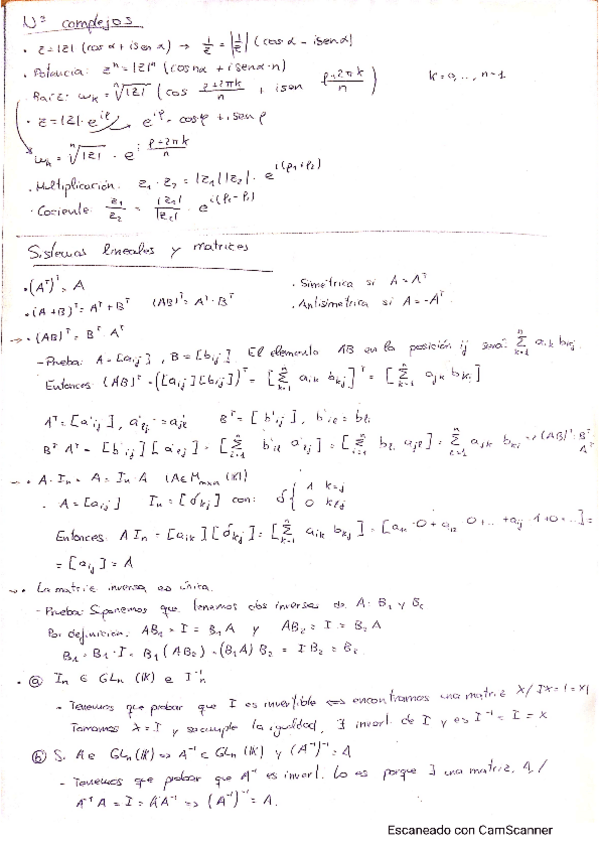 Nº complejos
· z = |z| (cos α + i sen α) → 1/z = |1/z| (cos α - i sen α)
· Potencia: zⁿ = |z|ⁿ (cos nα + i sen α·n)
· Raíz: ωk = ⁿ√|z| (cos (ρ+2πk)/n + i sen (ρ+2πk)/n) k = 0, ..., n-1
· z = |z|·e^{iρ} e^{iρ} = cos ρ + i sen ρ
ωk = ⁿ√|z| · e^{i (ρ+2πk)/n}
· Multiplicación: z₁·z₂ = |z₁||z₂|·e^{i(ρ₁+ρ₂)}
· Cociente: z₁/z₂ = |z₁|/|z₂| · e^{i(ρ₁-ρ₂)}
Sistemas lineales y matrices
· (Aᵀ)ᵀ = A · Simétrica si A = Aᵀ
· (A+B)ᵀ = Aᵀ + Bᵀ (AB)ᵀ = Aᵀ·Bᵀ · Antisimétrica si A = -Aᵀ
→ · (AB)ᵀ = Bᵀ·Aᵀ
- Prueba: A = [aij], B = [bij]. El elemento AB en la posición ij será: Σⁿk=1 aik bkj
Entonces (AB)ᵀ = ([aij][bij])ᵀ = [Σⁿk=1 aik bkj]ᵀ = [Σⁿk=1 ajk bki]
Aᵀ = [a'ij], Bᵀ = [b'ij],
Bᵀ Aᵀ = [b'ij][a'ij] =
→ · A·In = A = In·A (A∈Mmxn (K))
· A = [aij] In = [δkj] con: δ { 1 k=j
0 k≠j
Entonces A In = [aik][δkj] = [Σⁿk=1 aik bkj] =
= [aij] = A
→ · La matriz inversa es única.
- Prueba: Suponemos que tenemos dos inversas de A: B₁ y B₂
Por definición: AB₁ = I = B₁A y AB₂ = I = B₂A
B₁ = B₁·I = B₁(AB₂) = (B₁A)B₂ = IB₂ = B₂
· ⓐ In ∈ GLn (K) e I⁻¹n
- Tenemos que probar que I es invertible ⇔ encontramos una matriz X / IX = I = XI
Tomamos X = I y se cumple la igualdad, ∃ invert. de I y es I⁻¹ = I = X
ⓑ Si A ∈ GLn(K) ⇒ A⁻¹ ∈ GLn(K) y (A⁻¹)⁻¹ = A
- Tenemos que probar que A⁻¹ es invert. Lo es porque ∃ una matriz, A, /
A⁻¹A = I = AA⁻¹ ⇒ (A⁻¹)⁻¹ = A.
Escaneado con CamScanner